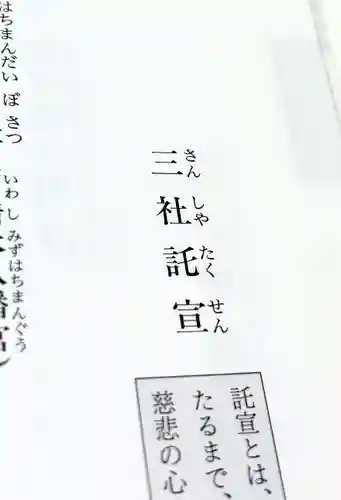 三社託宣
さんしゃたくせん
託宣とは、
たるまで、
慈悲の心
はちまんだいぼさつ
いわしみずはちまんぐう